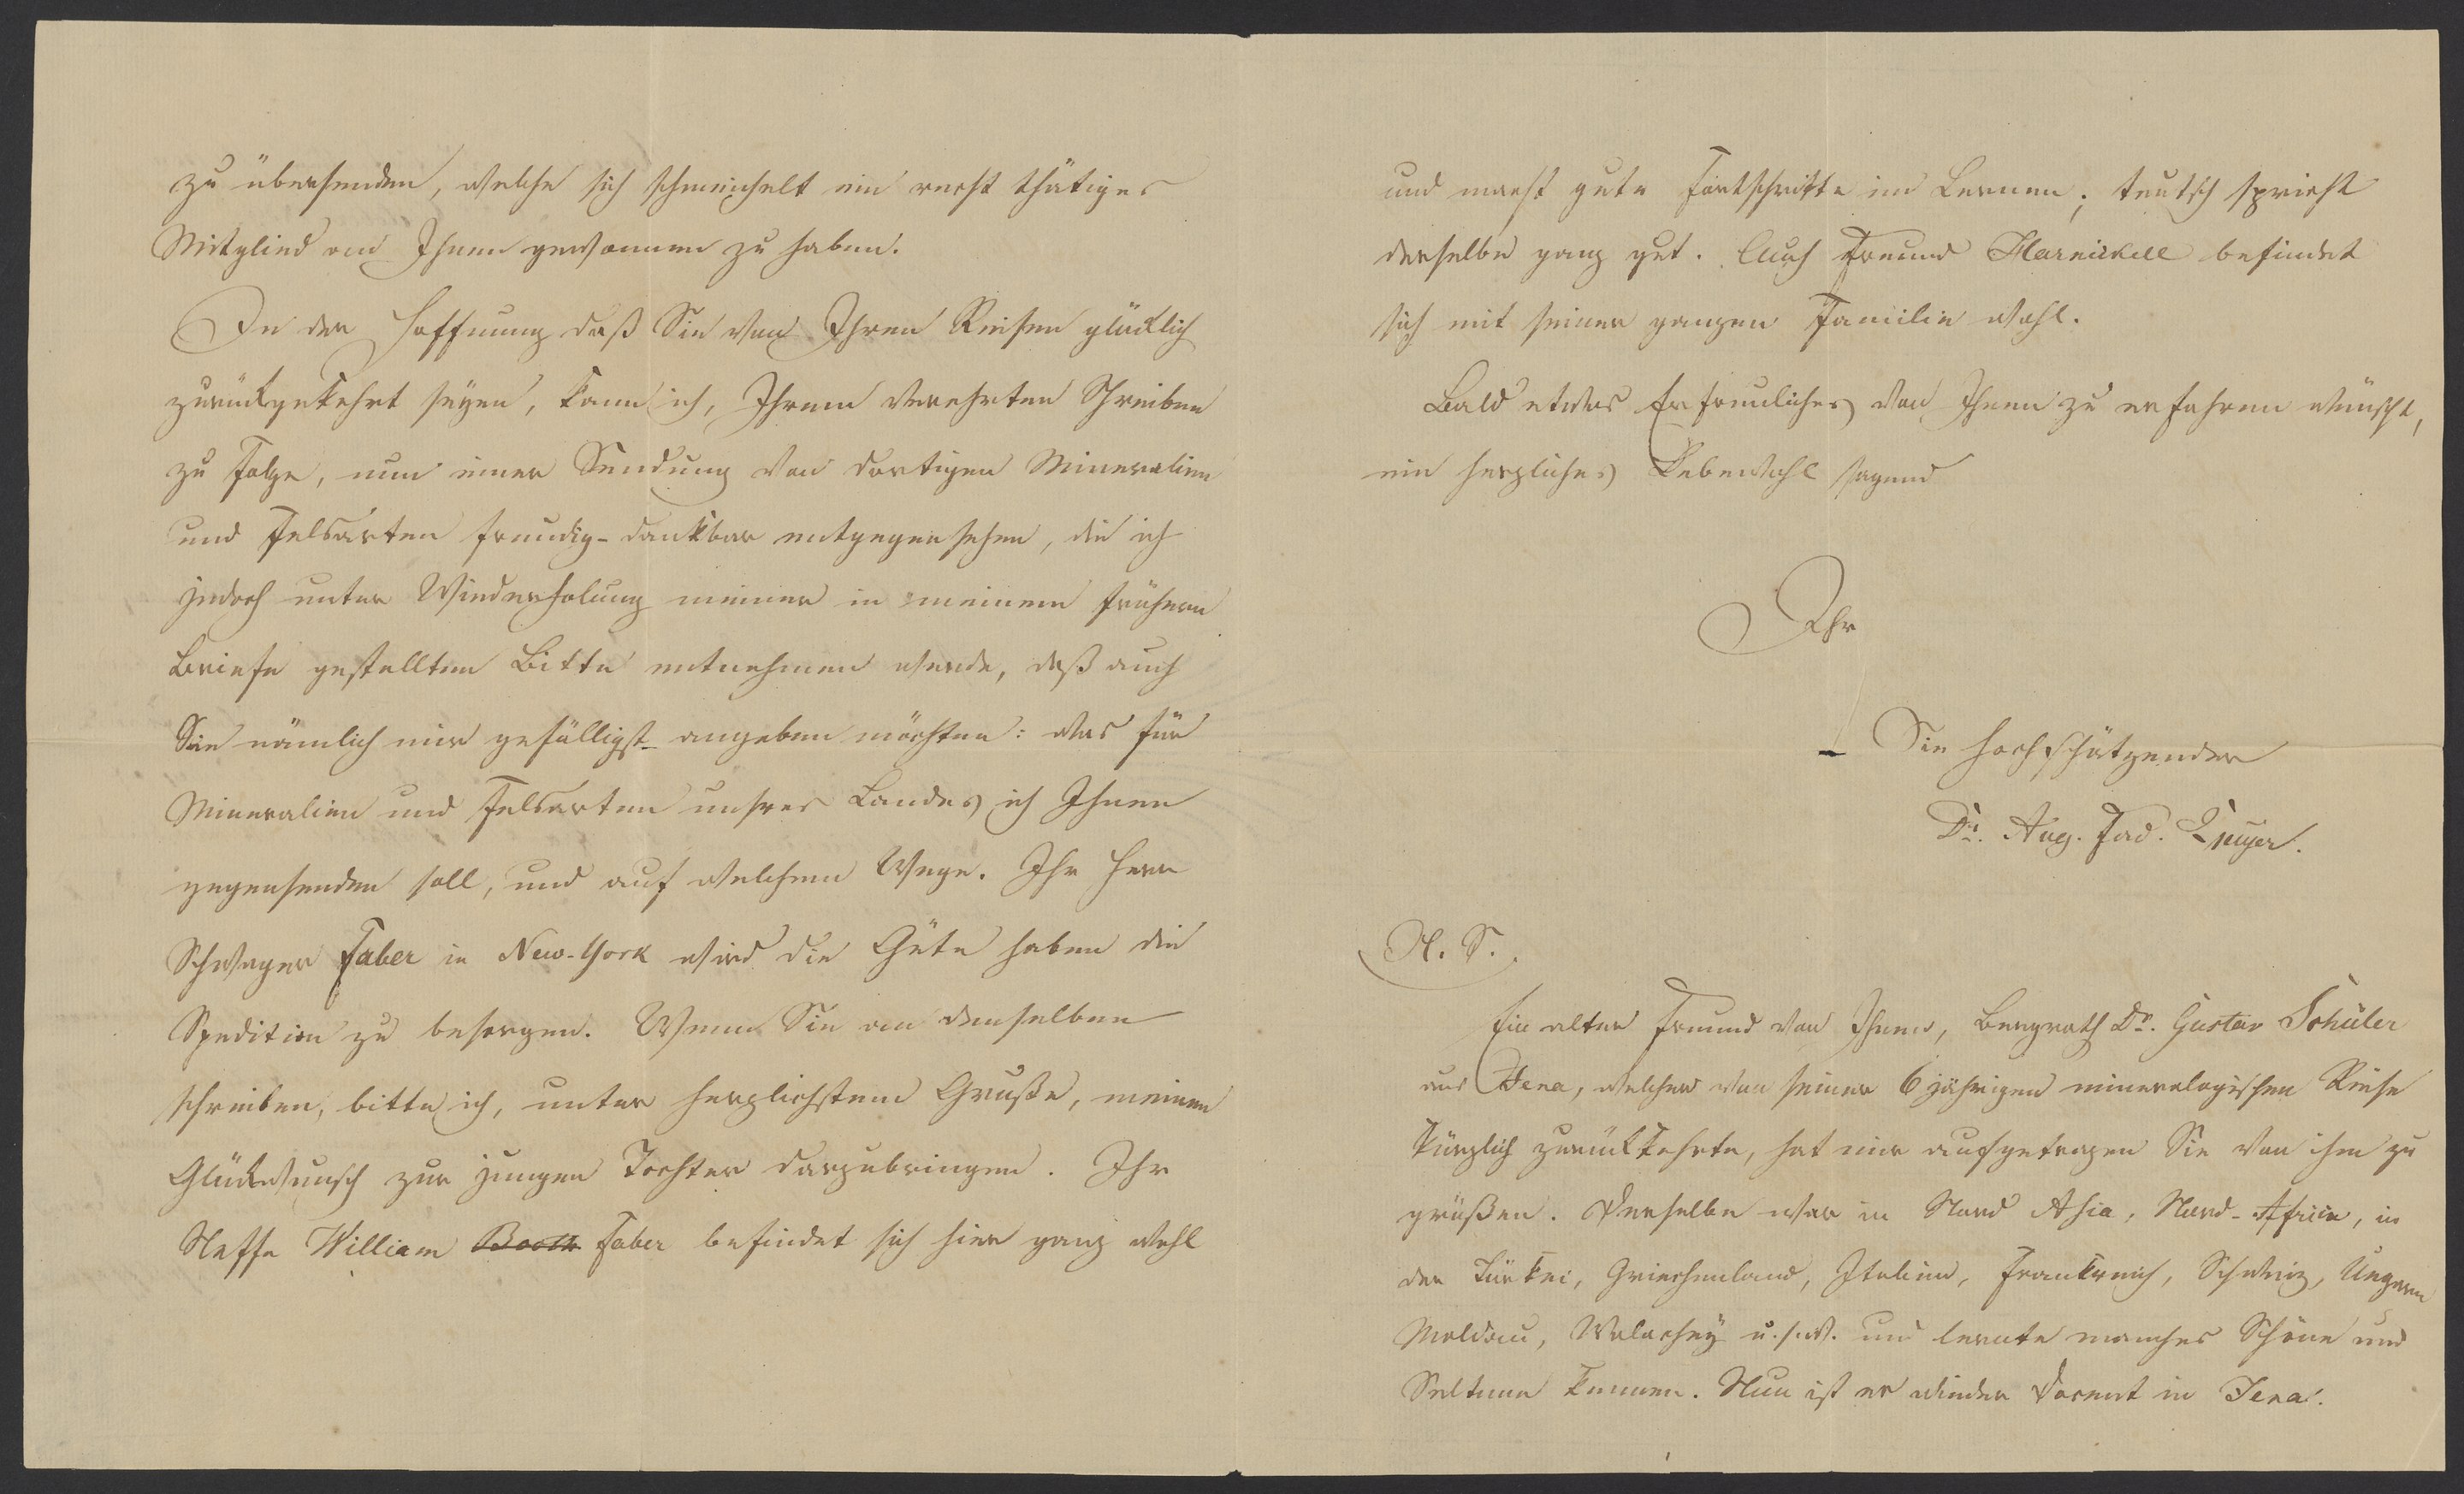 zu übersenden, welche sich schmeichelt ein recht thätiges
Mitglied an Ihnen gewonnen zu haben.
In der Hoffnung daß Sie von Ihren Reisen glücklich
zurückgekehrt seyen, kann ich, Ihrem verehrten Schreiben
zu Folge, nun einer Sendung von dortigen Mineralien
und Felsarten freudig-dankbar entgegensehen, die ich
jedoch unter Wiederholung meiner in meinem frühern
Briefe gestellten Bitte entnehmen werde, daß auch
Sie nämlich mir gefälligst angeben möchten: was für
Mineralien und Felsarten unsres Landes ich Ihnen
gegensenden soll, und auf welchem Wege. Ihr Herr
Schwager Faber in New-York wird die Güte haben die
Spedition zu besorgen. Wenn Sie an denselben
schreiben, bitte ich, unter herzlichstem Gruße, meinen
Glückwunsch zur jungen Tochter darzubringen. Ihr
Neffe William Booth Faber befindet sich hier ganz wohl
und macht gute Fortschritte im Lernen; teutsch spricht
derselbe ganz gut. Auch Freund Harnickell befindet
sich mit seiner ganzen Familie wohl.
Bald etwas Erfreuliches von Ihnen zu erfahren wünscht,
ein herzliches Lebewohl sagend
Ihr
Sie hochschätzender
Dr. Aug. Fad.
N. S.
Ein alter Freund von Ihnen, Bergrath Dr. Gustav Schüler
aus Jena, welcher von seiner 6 jährigen mineralogischen Reise
kürzlich zurückkehrte, hat mir aufgetragen Sie von ihm zu
grüßen. Derselbe war in Nord Asia, Nord-Africa, in
der Türkei, Griechenland, Italien, Frankreich, Schweiz, Ungern
Moldau, Walachey u.s.w. und lernte manches Schöne und
Seltene kennen. Nun ist er wieder Docent in Jena.